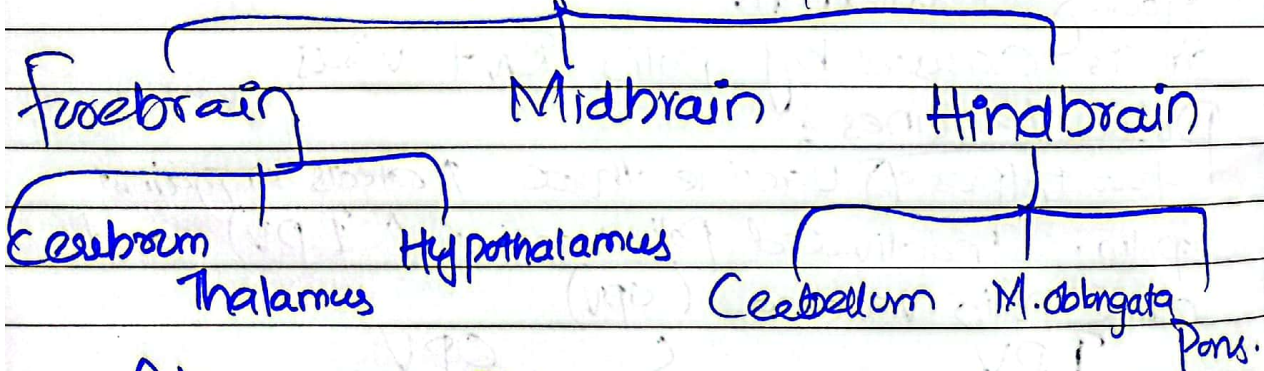 Forebrain Midbrain Hindbrain
Cerebrum Hypothalamus
Thalamus Cerebellum M. oblongata
Pons.